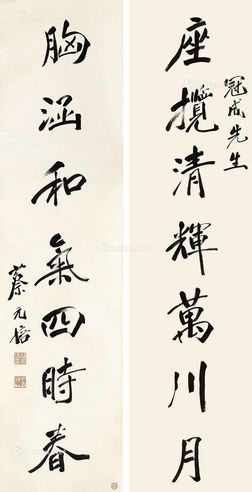 冠成先生
座攬清輝萬川月
胸涵和氣四時春
蔡元培